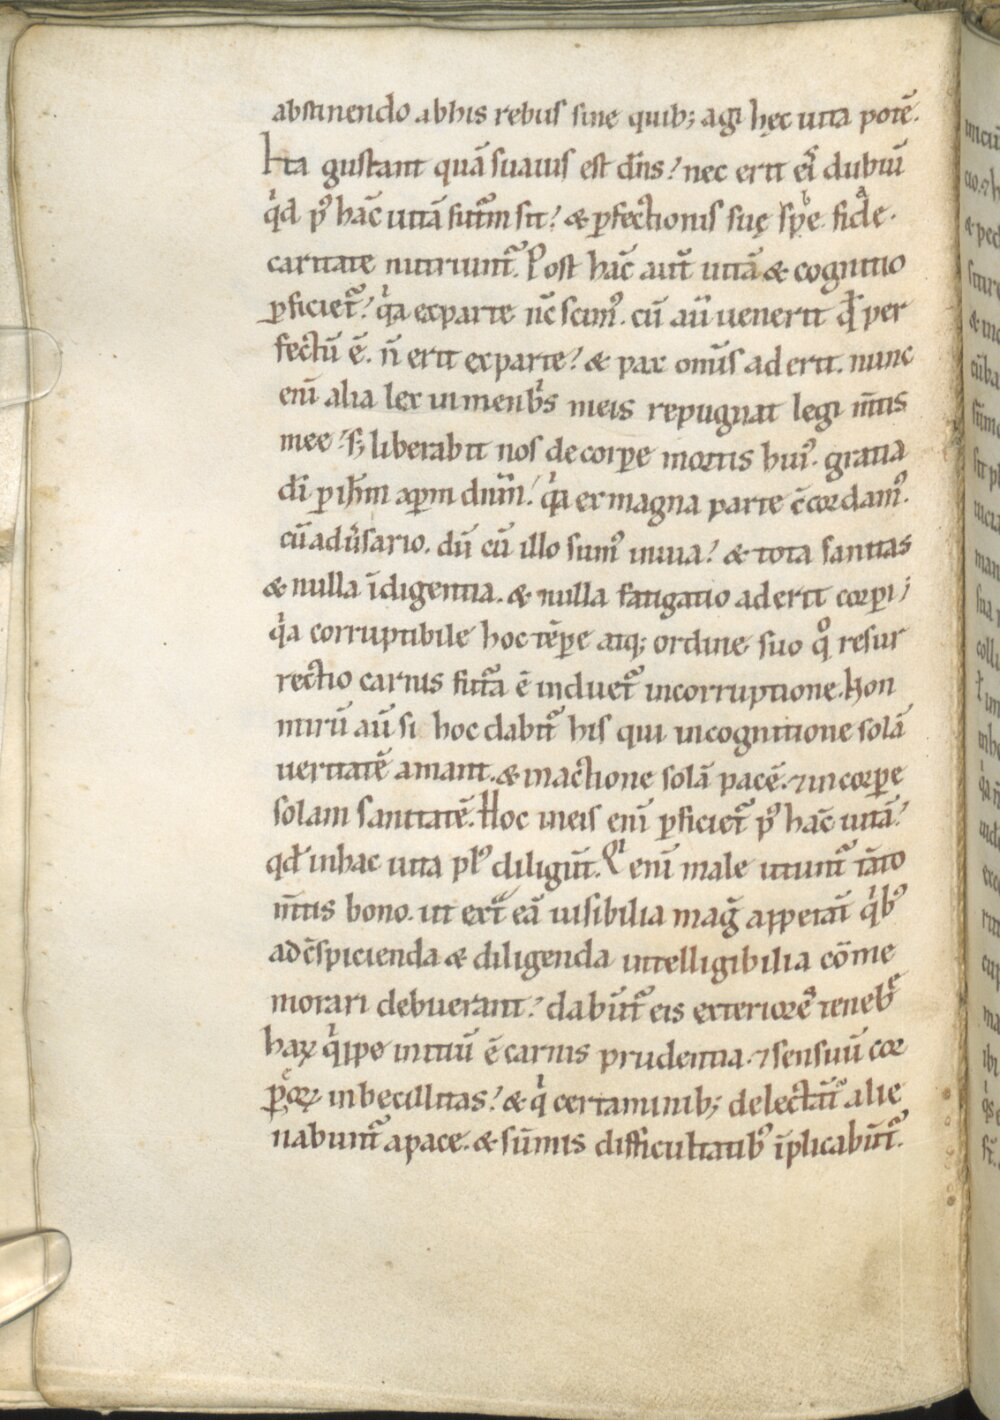 abstinendo abhis rebus sine quib; agi hęc uita potē.
Ita gustant quā suauis est dn̄s? nec erit ei͛ dubiū
qͥd pꝰ hāc uitā futūm sit? & ꝑfectionis suę spe. fide.
caritate nutriunt᷑. Post hāc aut̄ uitā & cognitio
ꝑficiet᷑? qͥa exparte nc̄ scimꝰ. cū aū uenerit qđ per
fectū ē. n̄ erit exparte? & pax om̄s aderit. nunc
enī alia lex inmenbͥs meis repugnat legi m̄tis
mee. s; liberabit nos decorpe mortis huiꝰ. gratia
dī ꝑ ih̄m xp̄m dnm̄. qͥa ex magna parte c̄cordamꝰ.
cū adu͛sario. dū cū illo sumꝰ inuia? & tota sanitas
& nulla īdigentia. & nulla fatigatio aderit corpi;
qͥa corruptibile hoc tēꝑe atq; ordine suo qͦ resur
rectio carnis futᷓa ē induet᷑ incorruptione. Non
mirū aū si hoc dabit᷑ his qui incognitione solā
ueritatē amant. & inactione solā pacē. ⁊ incorꝑe
solam sanitatē. Hoc ineis enī ꝑficiet᷑ pꝰ hāc uitā?
qđ inhac uita plꝰ diligūt. Qͥ enī male utunt᷑ tāto
m̄tis bono. ut ext͛ eā uisibilia mag̃ appetāt qͥbꝰ
adc̄spicienda & diligenda intelligibilia cōme
morari debuerant? dabūt᷑ eis exteriorē teneb͛
haꝝ qͥppe initiū ē carnis prudentia. ⁊ sensuū cor
poreoꝝ inbecillitas? & qͥ certaminib; delectāt᷑ alie
nabunt᷑ apace. & sūmis difficultatibꝰ īplicabūt᷑.